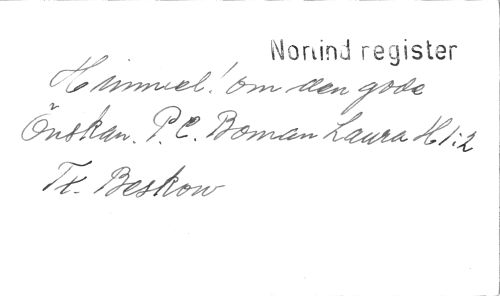 Norlind register
Himmel! om den gode
Önskan. P.C. Boman Laura H1:2
Tx. Beskow